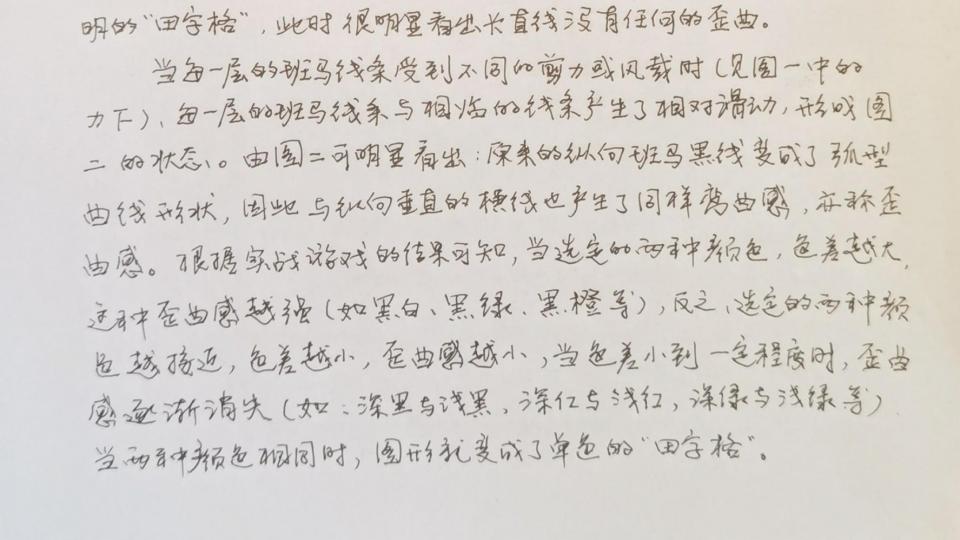 明的“田字格”，此时很明显看出长直线没有任何的歪曲。
当每一层的斑马线条受到不同的剪力或风载时（见图一中的
力F），每一层的斑马线条与相临的线条产生了相对滑动，形成图
二的状态。由图二可明显看出：原来的纵向斑马黑线变成了弧型
曲线形状，因此与纵向垂直的横线也产生了同样弯曲感，亦称歪
曲感。根据实战游戏的结果可知，当选定的两种颜色，色差越大，
这种歪曲感越强（如黑白、黑绿、黑橙等），反之，选定的两种颜
色越接近，色差越小，歪曲感越小，当色差小到一定程度时，歪曲
感逐渐消失（如：深黑与浅黑，深红与浅红，深绿与浅绿等）
当两种颜色相同时，图形就变成了单色的“田字格”。